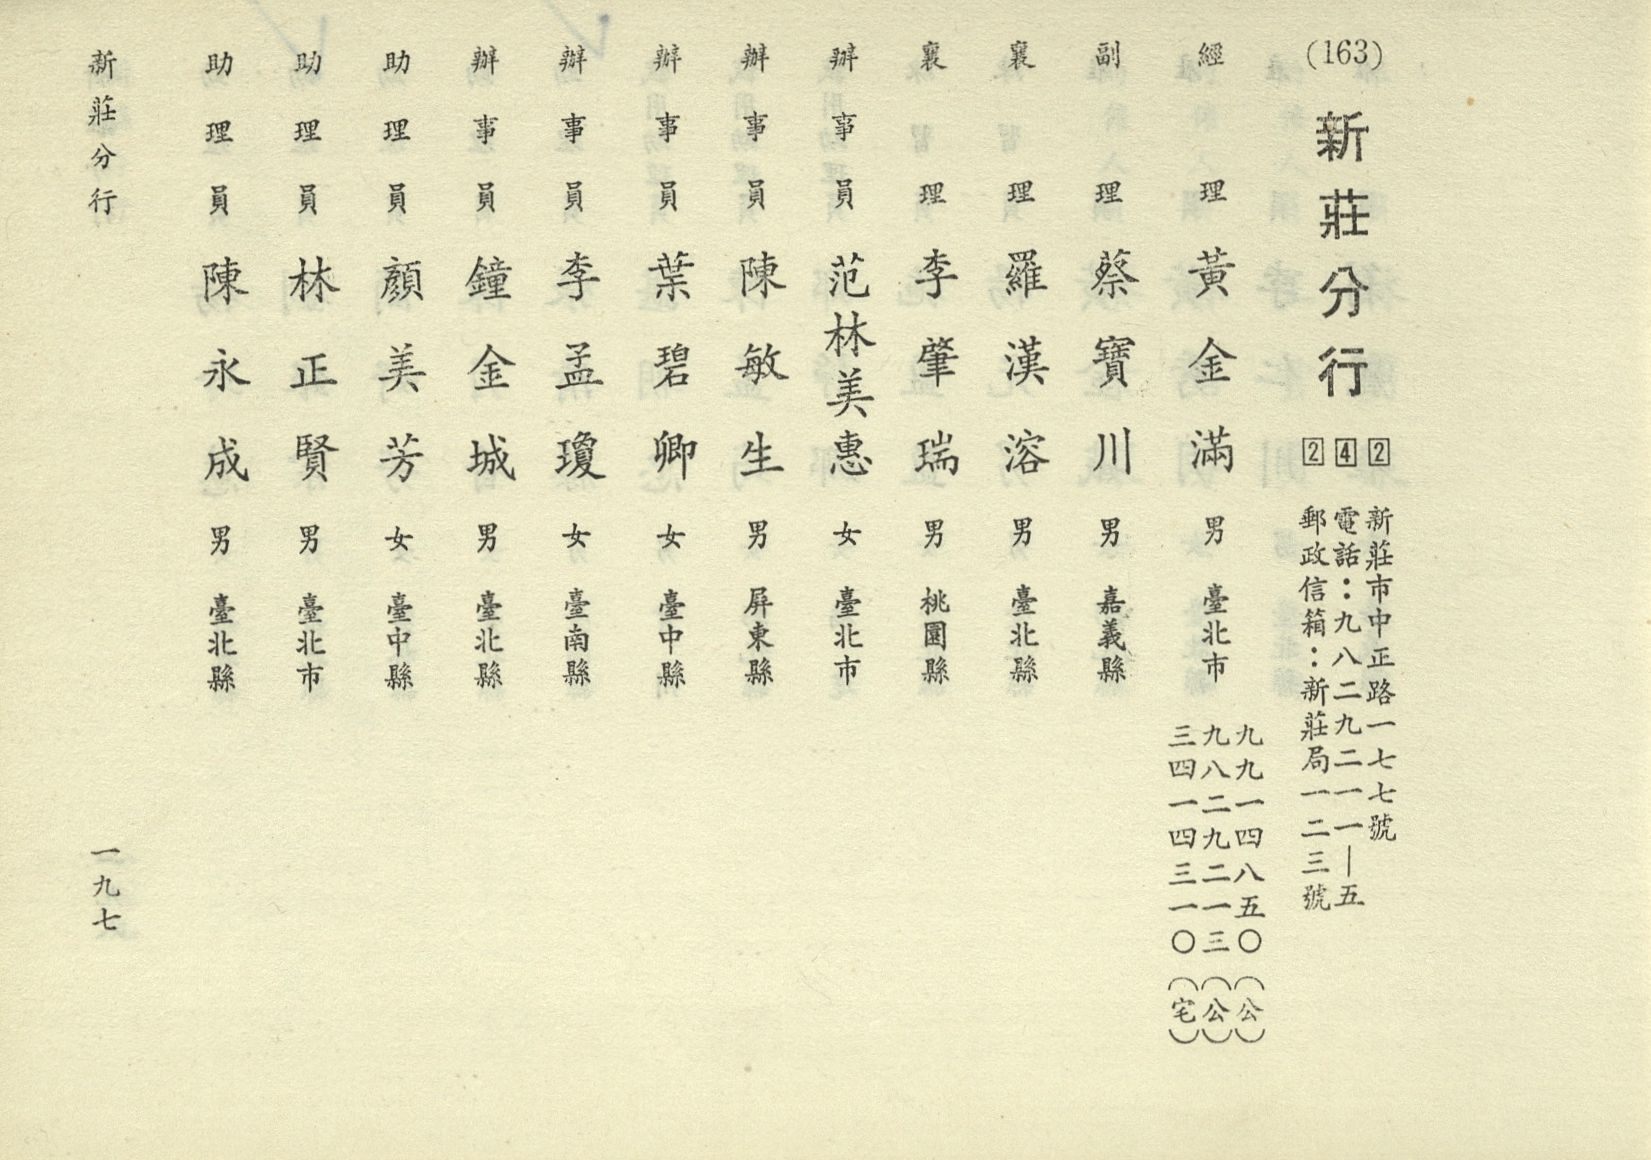 (163)
新莊分行
2 新莊市中正路一七七號
4 電話：九八二九二一一｜五
2 郵政信箱：新莊局一二三號
經理 黃金滿 男 臺北市
九九一四八五〇（公）
九八二九二一三（公）
三四一四三一〇（宅）
副理 蔡寶川 男 嘉義縣
襄理 羅漢溶 男 臺北縣
襄理 李肇瑞 男 桃園縣
辦事員 范林美惠 女 臺北市
辦事員 陳敏生 男 屏東縣
辦事員 葉碧卿 女 臺中縣
辦事員 李孟瓊 女 臺南縣
辦事員 鐘金城 男 臺北縣
助理員 顏美芳 女 臺中縣
助理員 林正賢 男 臺北市
助理員 陳永成 男 臺北縣
新莊分行
一九七